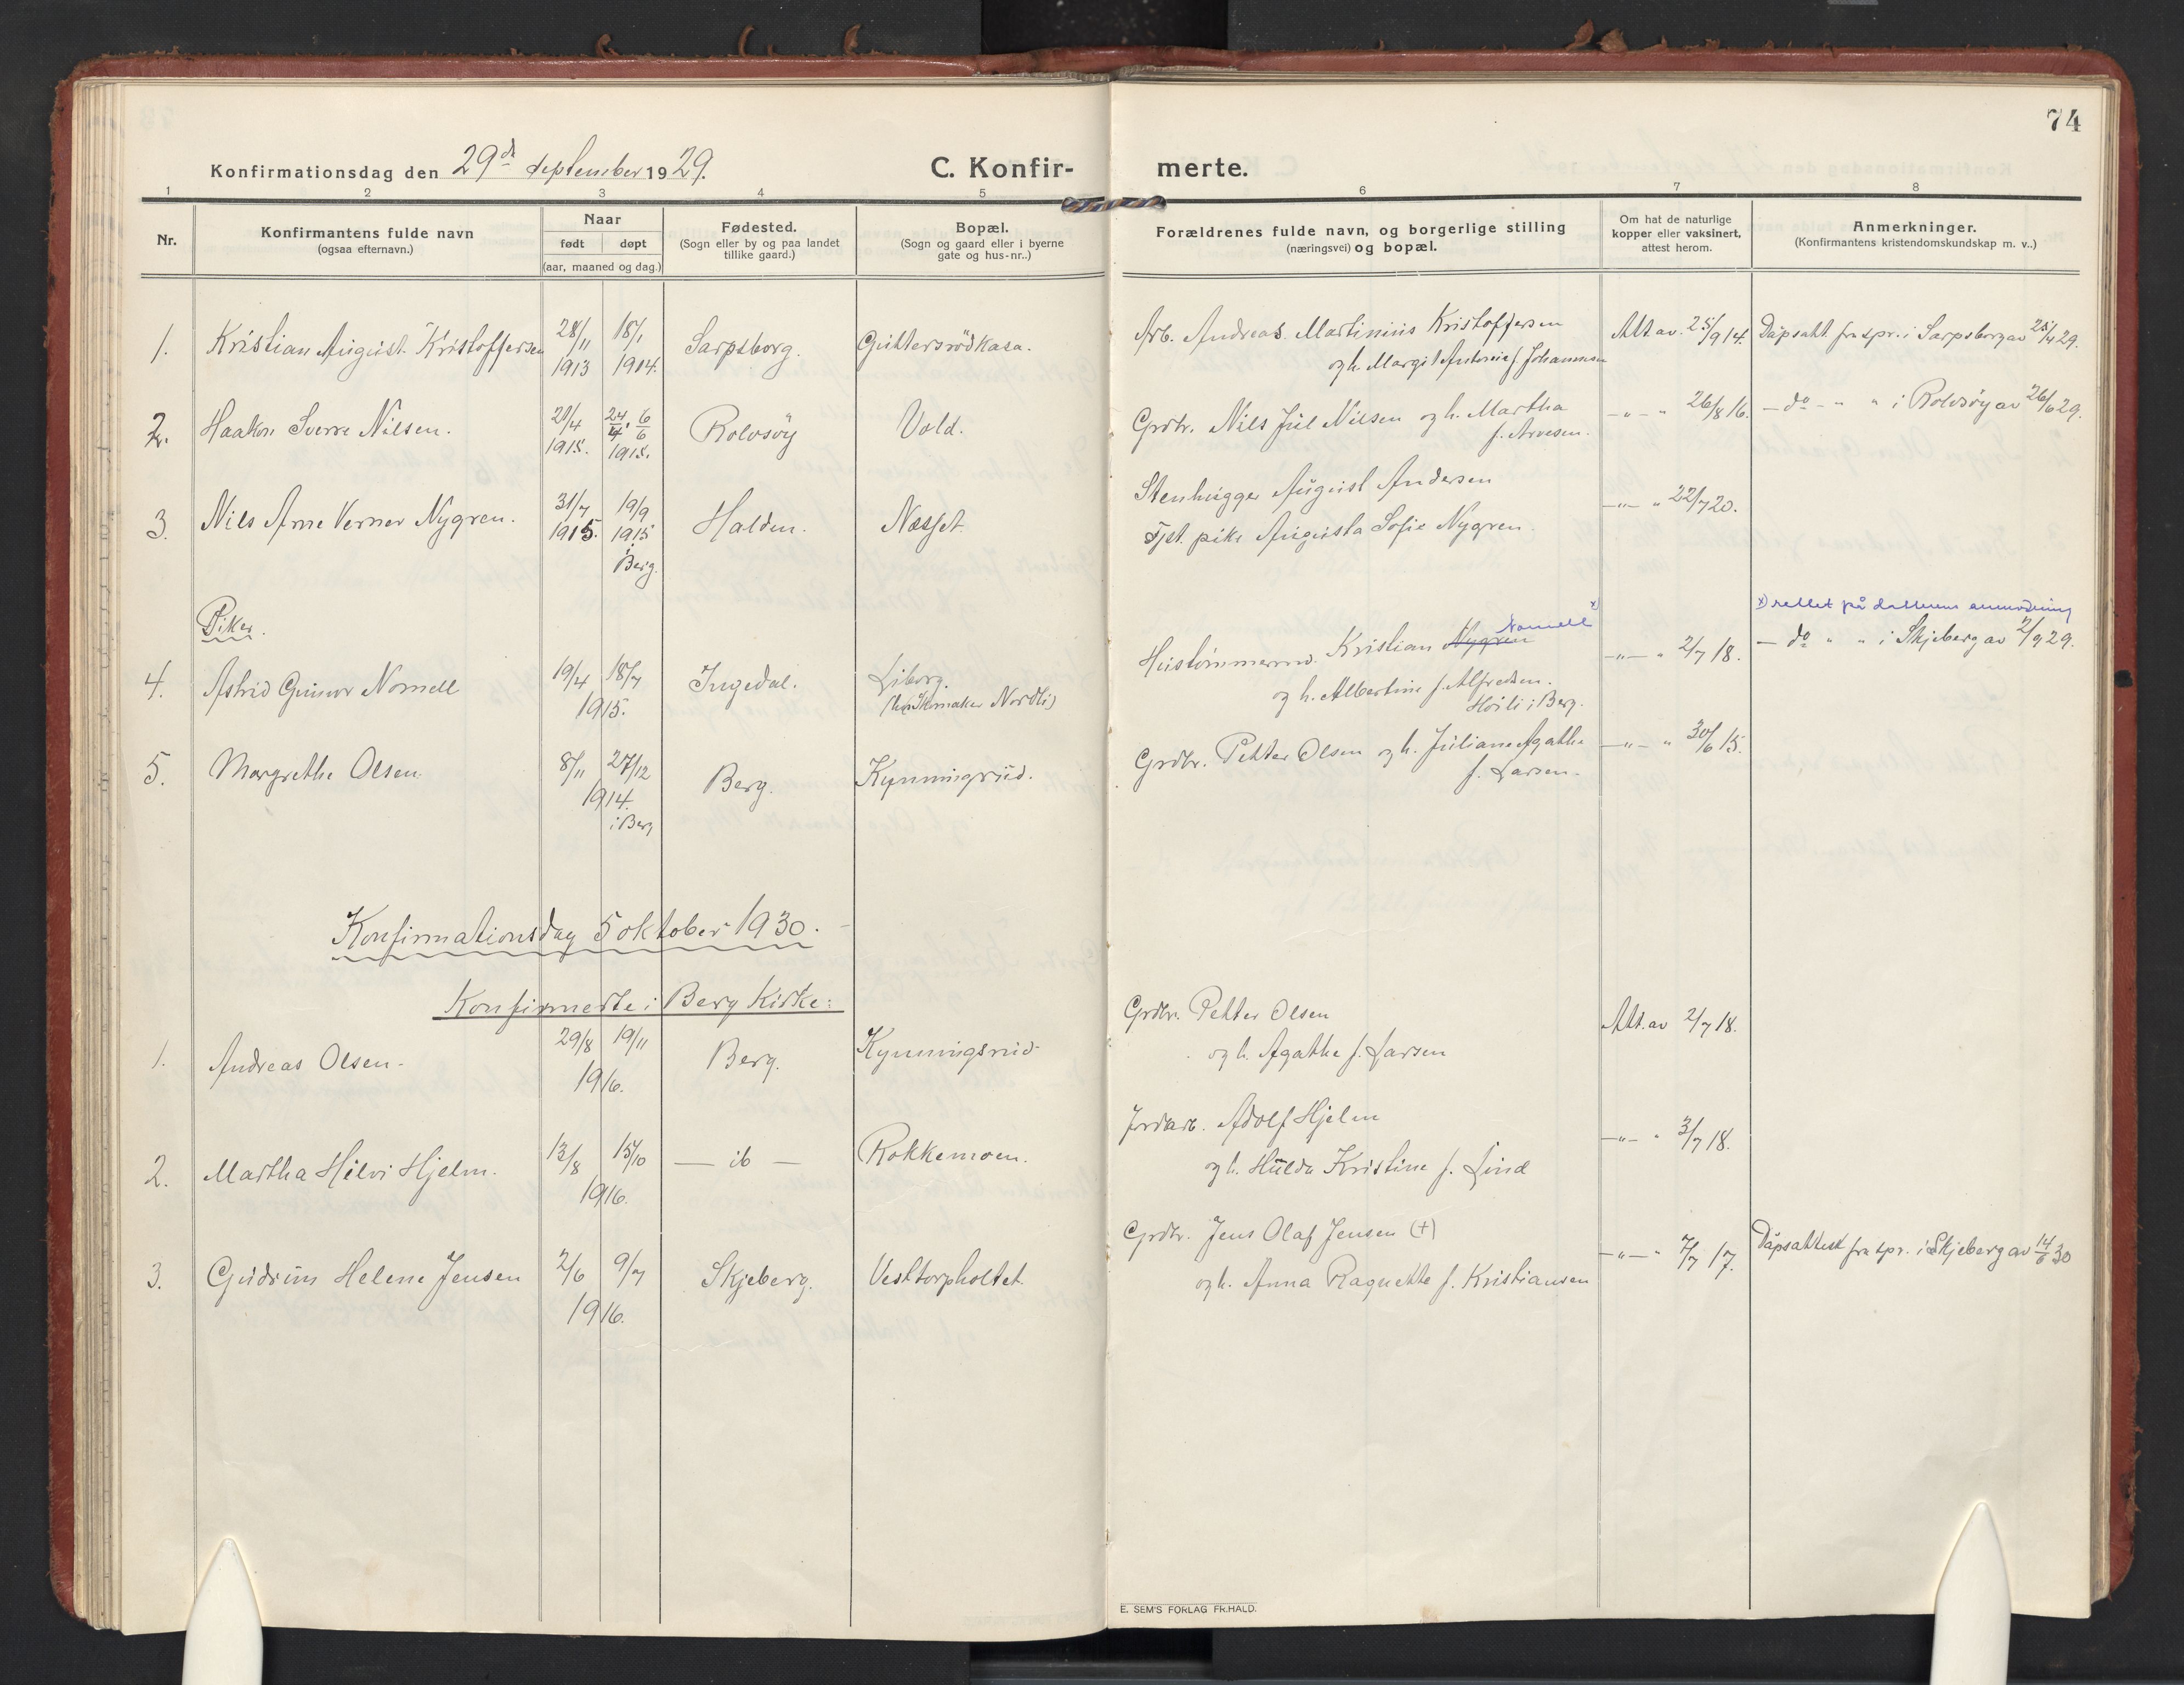 74
Konfirmationsdag den 29de september 1929.
C. Konfir-
merte.
1 2 3 4 5 6 7 8
Nr.
Konfirmantens fulde navn
(ogsaa efternavn.)
Naar
født døpt
(aar, maaned og dag.)
Fødested.
(Sogn eller by og paa landet
tillike gaard.)
Bopæl.
(Sogn og gaard eller i byerne
gate og hus-nr..)
Forældrenes fulde navn, og borgerlige stilling
(næringsvei) og bopæl.
Om hat de naturlige
kopper eller vaksinert,
attest herom.
Anmerkninger.
(Konfirmantens kristendomskundskap m. v..)
1. Kristian August Kristoffersen 28/11 1913 18/1 1914. Sarpsborg. Guttersrödkasa.
Arb. Andreas Martinius Kristoffersen
og h. Margit Antonie f. Johannsen
Att av. 25/9 14. Dåpsatt fra spr. i Sarpsborg av 25/4 29.
2. Haakon Sverre Nilsen. 21/4 1915. 24/4. 6/6 1915. Rolvsöy Vold.
Grdbr. Nils Jul Nilsen og h. Martha
f. Arvesen.
— " — " 26/8 16. — do — " " i Rolvsöy av 26/6 29.
3. Nils Arne Verner Nygren. 31/7 1915. 19/9 1915 i Berg. Halden. Næsset.
Stenhugger August Andersen
Tjst. pike Augusta Sofie Nygren.
— " — " 22/7 20.
Piker.
x) rettet på datterens anmodning
4. Astrid Gunvor Nornell 19/4 18/7 1915. Ingedal. Liborg.
(hos Skomaker Nordli)
Hustömmerm. Kristian Nygren Nornell x)
og h. Albertine f. Alfredsen.
Höili i Berg.
— " — " 2/7 18. — do " " i Skjeberg av 2/9 29.
5. Margrethe Olsen. 8/11 27/12 1914. i Berg Berg. Kynningsrud.
Grdbr. Petter Olsen og h. Juliane Agathe
f. Larsen.
— " — " 30/6 15.
Konfirmationsdag 5 oktober 1930.
Konfirmerte i Berg Kirke:
1. Andreas Olsen. 29/8 19/11 1916. Berg. Kynningsrud
Grdbr. Petter Olsen
og h. Agathe f. Larsen
Att. av 2/7 18.
2. Martha Hilvi Hjelm. 13/8 15/10 1916. — ib — Rokkemoen.
Jordarb. Adolf Hjelm
og h. Hulda Kristine f. Lind
— " — " 3/7 18.
3. Gudrun Helene Jensen 2/6 9/7 1916. Skjeberg. Vesttorpholtet.
Grdbr. Jens Olaf Jensen (+)
og h. Anna Ragnette f. Kristiansen
— " — " 7/7 17. Dåpsattest fra spr. i Skjeberg av 14/6 30
E. SEM'S FORLAG FR.HALD.